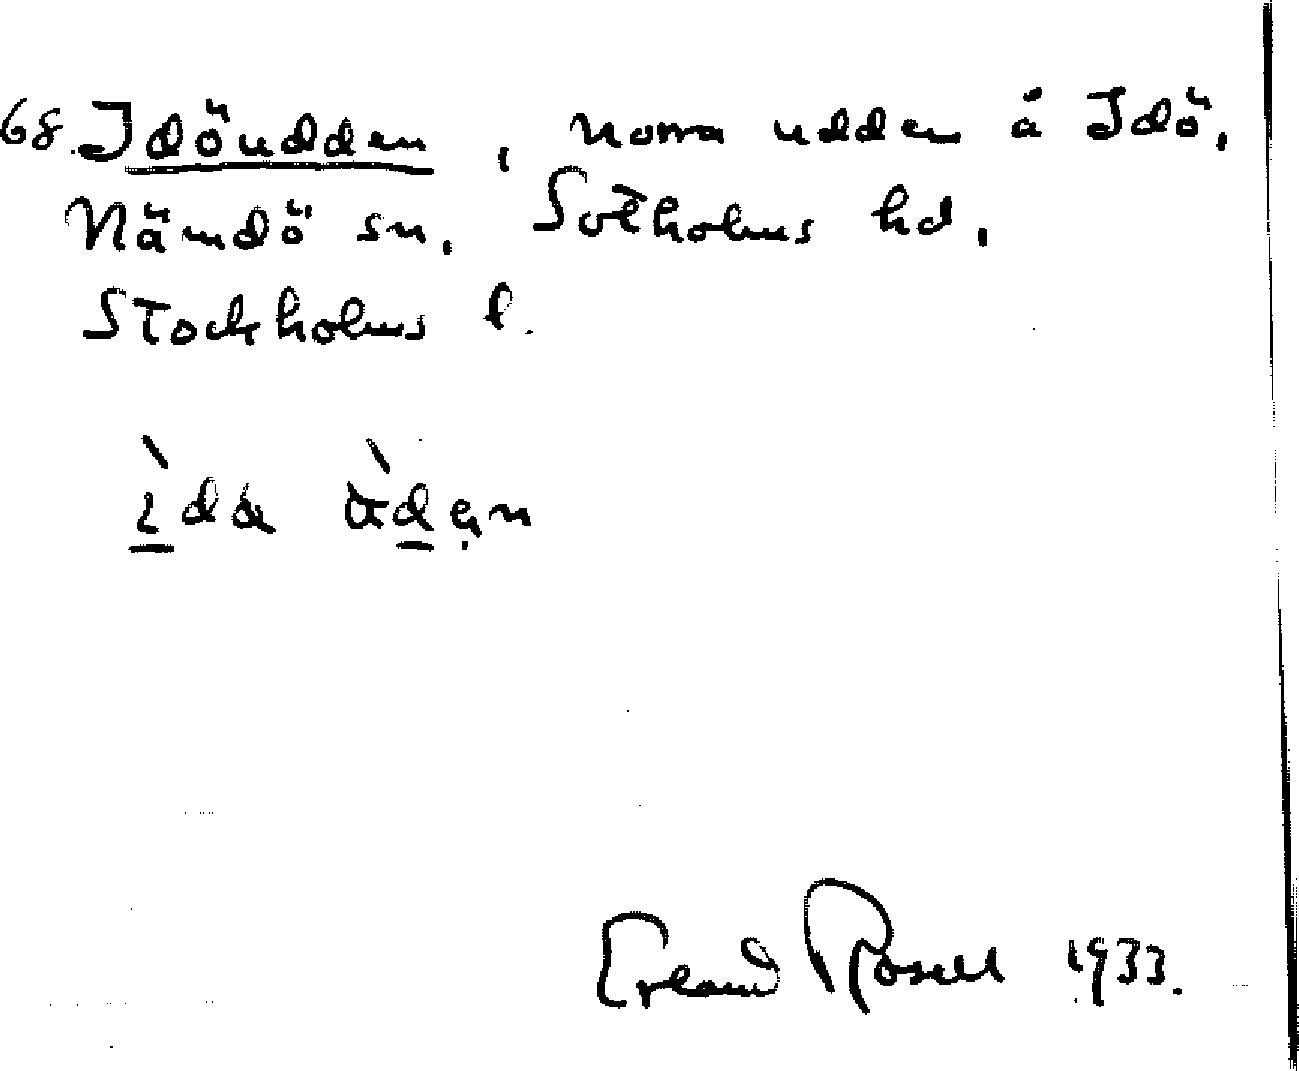 68. Idöudden, norra udden å Idö,
Nämdö sn, Sotholms hd,
Stockholms l.
Erland Rosell 1933.